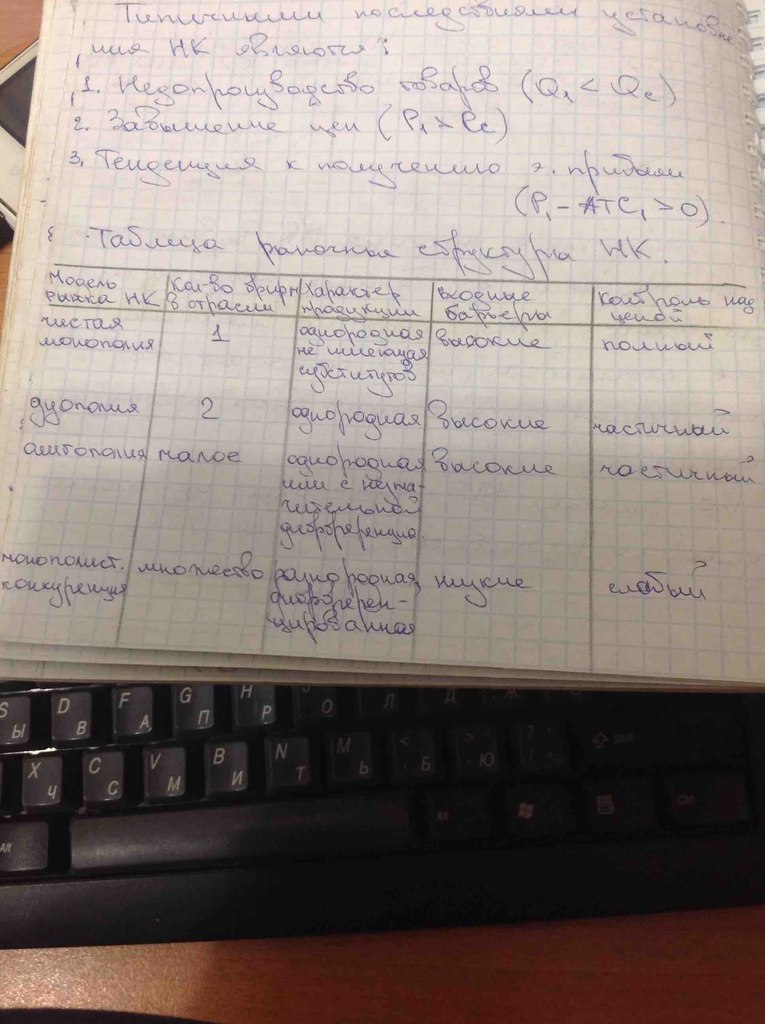 Типичными последствиями установле-
ния НК являются:
1. Недопроизводство товаров (Q₁ < Qc)
2. Завышение цен (P₁ > Pc)
3. Тенденция к получению э. прибыли
(P₁ - ATC₁ > 0).
Таблица рыночная структура НК.
Модель рынка НК | Кол-во фирм в отрасли | Характер продукции | входные барьеры | контроль над ценой
чистая монополия | 1 | однородная не имеющая субститутов | высокие | полный
дуополия | 2 | однородная | высокие | частичный
олигополия | малое | однородная или с незна-чительной дифференциа. | высокие | частичный
монополист. конкуренция | множество | разнородная, дифферен-цированная | низкие | слабый
S Ы
D В
F А
G П
H Р
О
Л
Д
Ж
X Ч
C С
V М
B И
N Т
M Ь
< Б
> Ю
?
Alt
Alt
Ctrl